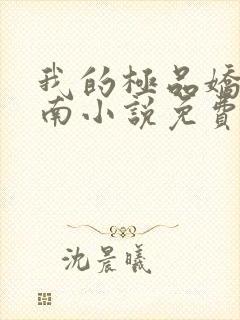 我的極品嬌
南小說免費
沈晨曦